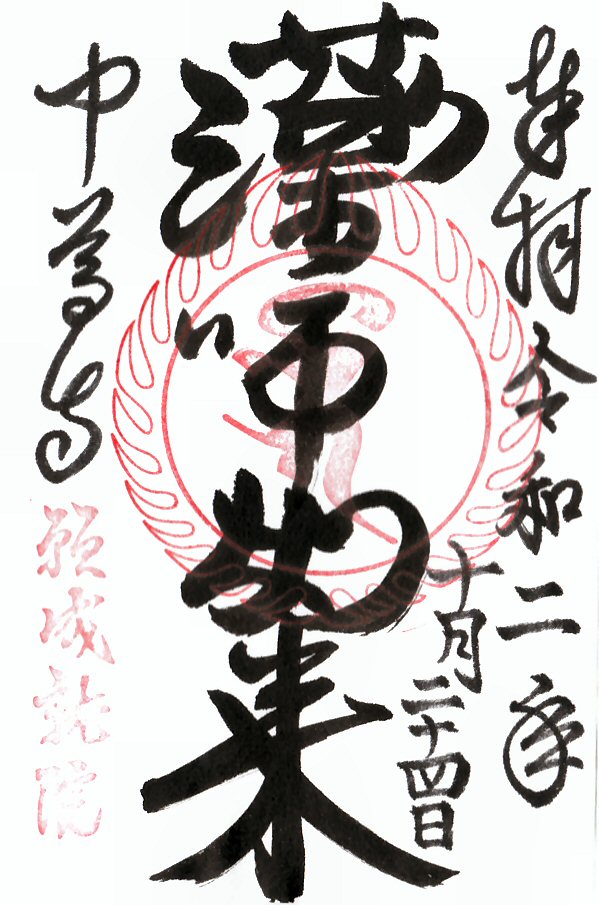 奉拝 令和二年
十月二十四日
薬師如来
中尊寺
願成就院